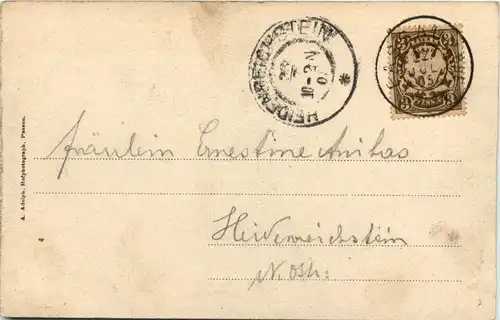 HEIDENREICHSTEIN
*
BAYERN
3 PFENNIG 3
A. Adolph, Hofphotograph, Passau.
Fräulein Ernestine Anibas
Heidenreichstein
N. Östr.